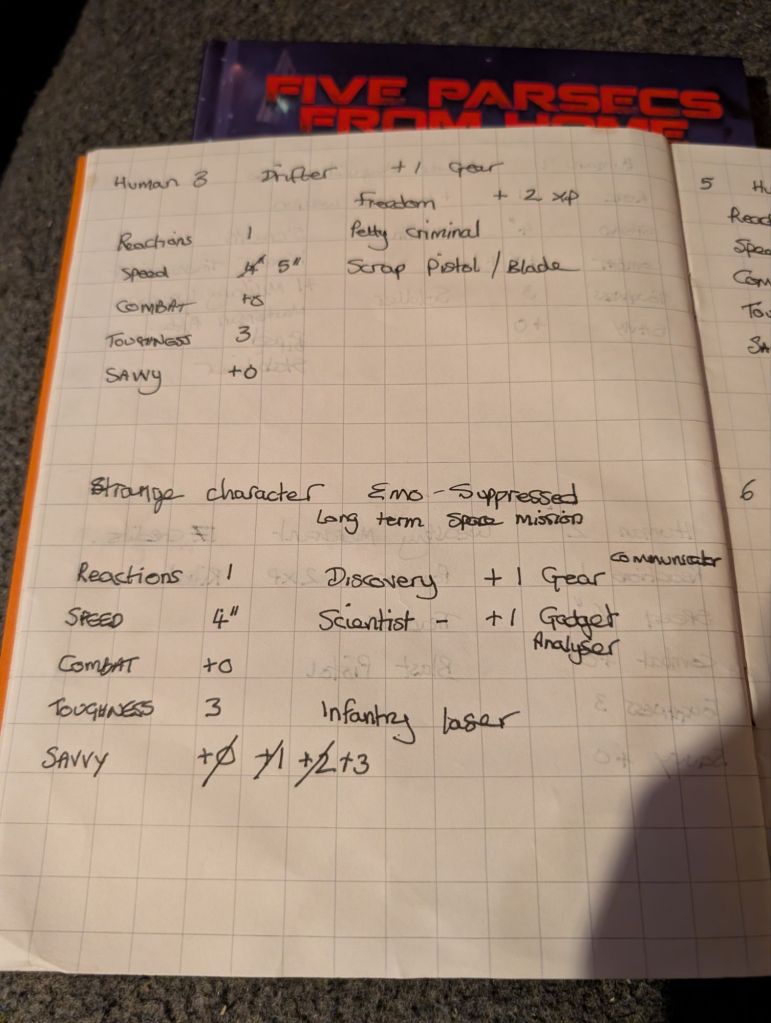 FIVE PARSECS
FROM HOME
Human 3 Drifter +1 Gear
Freedom + 2 xp
Reactions 1 Petty criminal
Speed 4" 5" Scrap Pistol / Blade
COMBAT +0
TOUGHNESS 3
SAVVY +0
Strange character Emo-Suppressed
Long term space mission
Reactions 1 Discovery +1 Gear communicator
SPEED 4" Scientist - +1 Gadget
Analyser
COMBAT +0
TOUGHNESS 3 Infantry laser
SAVVY +0 +1 +2 +3
5 Hu
Reac
Spee
Com
Tou
SA
6